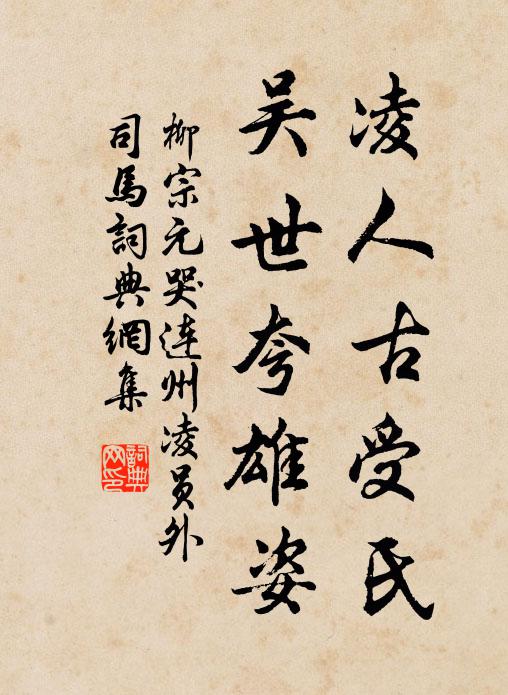 凌人古受氏
吴世夸雄姿
柳宗元哭连州凌员外
司馬詞典網集
詞典
网印